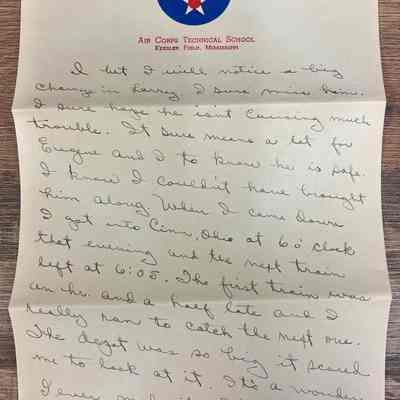 AIR CORPS TECHNICAL SCHOOL
KEESLER FIELD, MISSISSIPPI
I bet I will notice a big
change in Larry, I sure miss him.
I sure hope he isnt causing much
trouble. It sure means a lot for
Eugene and I to know he is safe.
I know I couldn't have brought
him along. When I came down
I got into Cinn, Ohio at 6 o'clock
that evening and the next train
left at 6:05. The first train was
an hr. and a half late and I
really ran to catch the next one.
The depot was so big it scared
me to look at it. It's a wonder